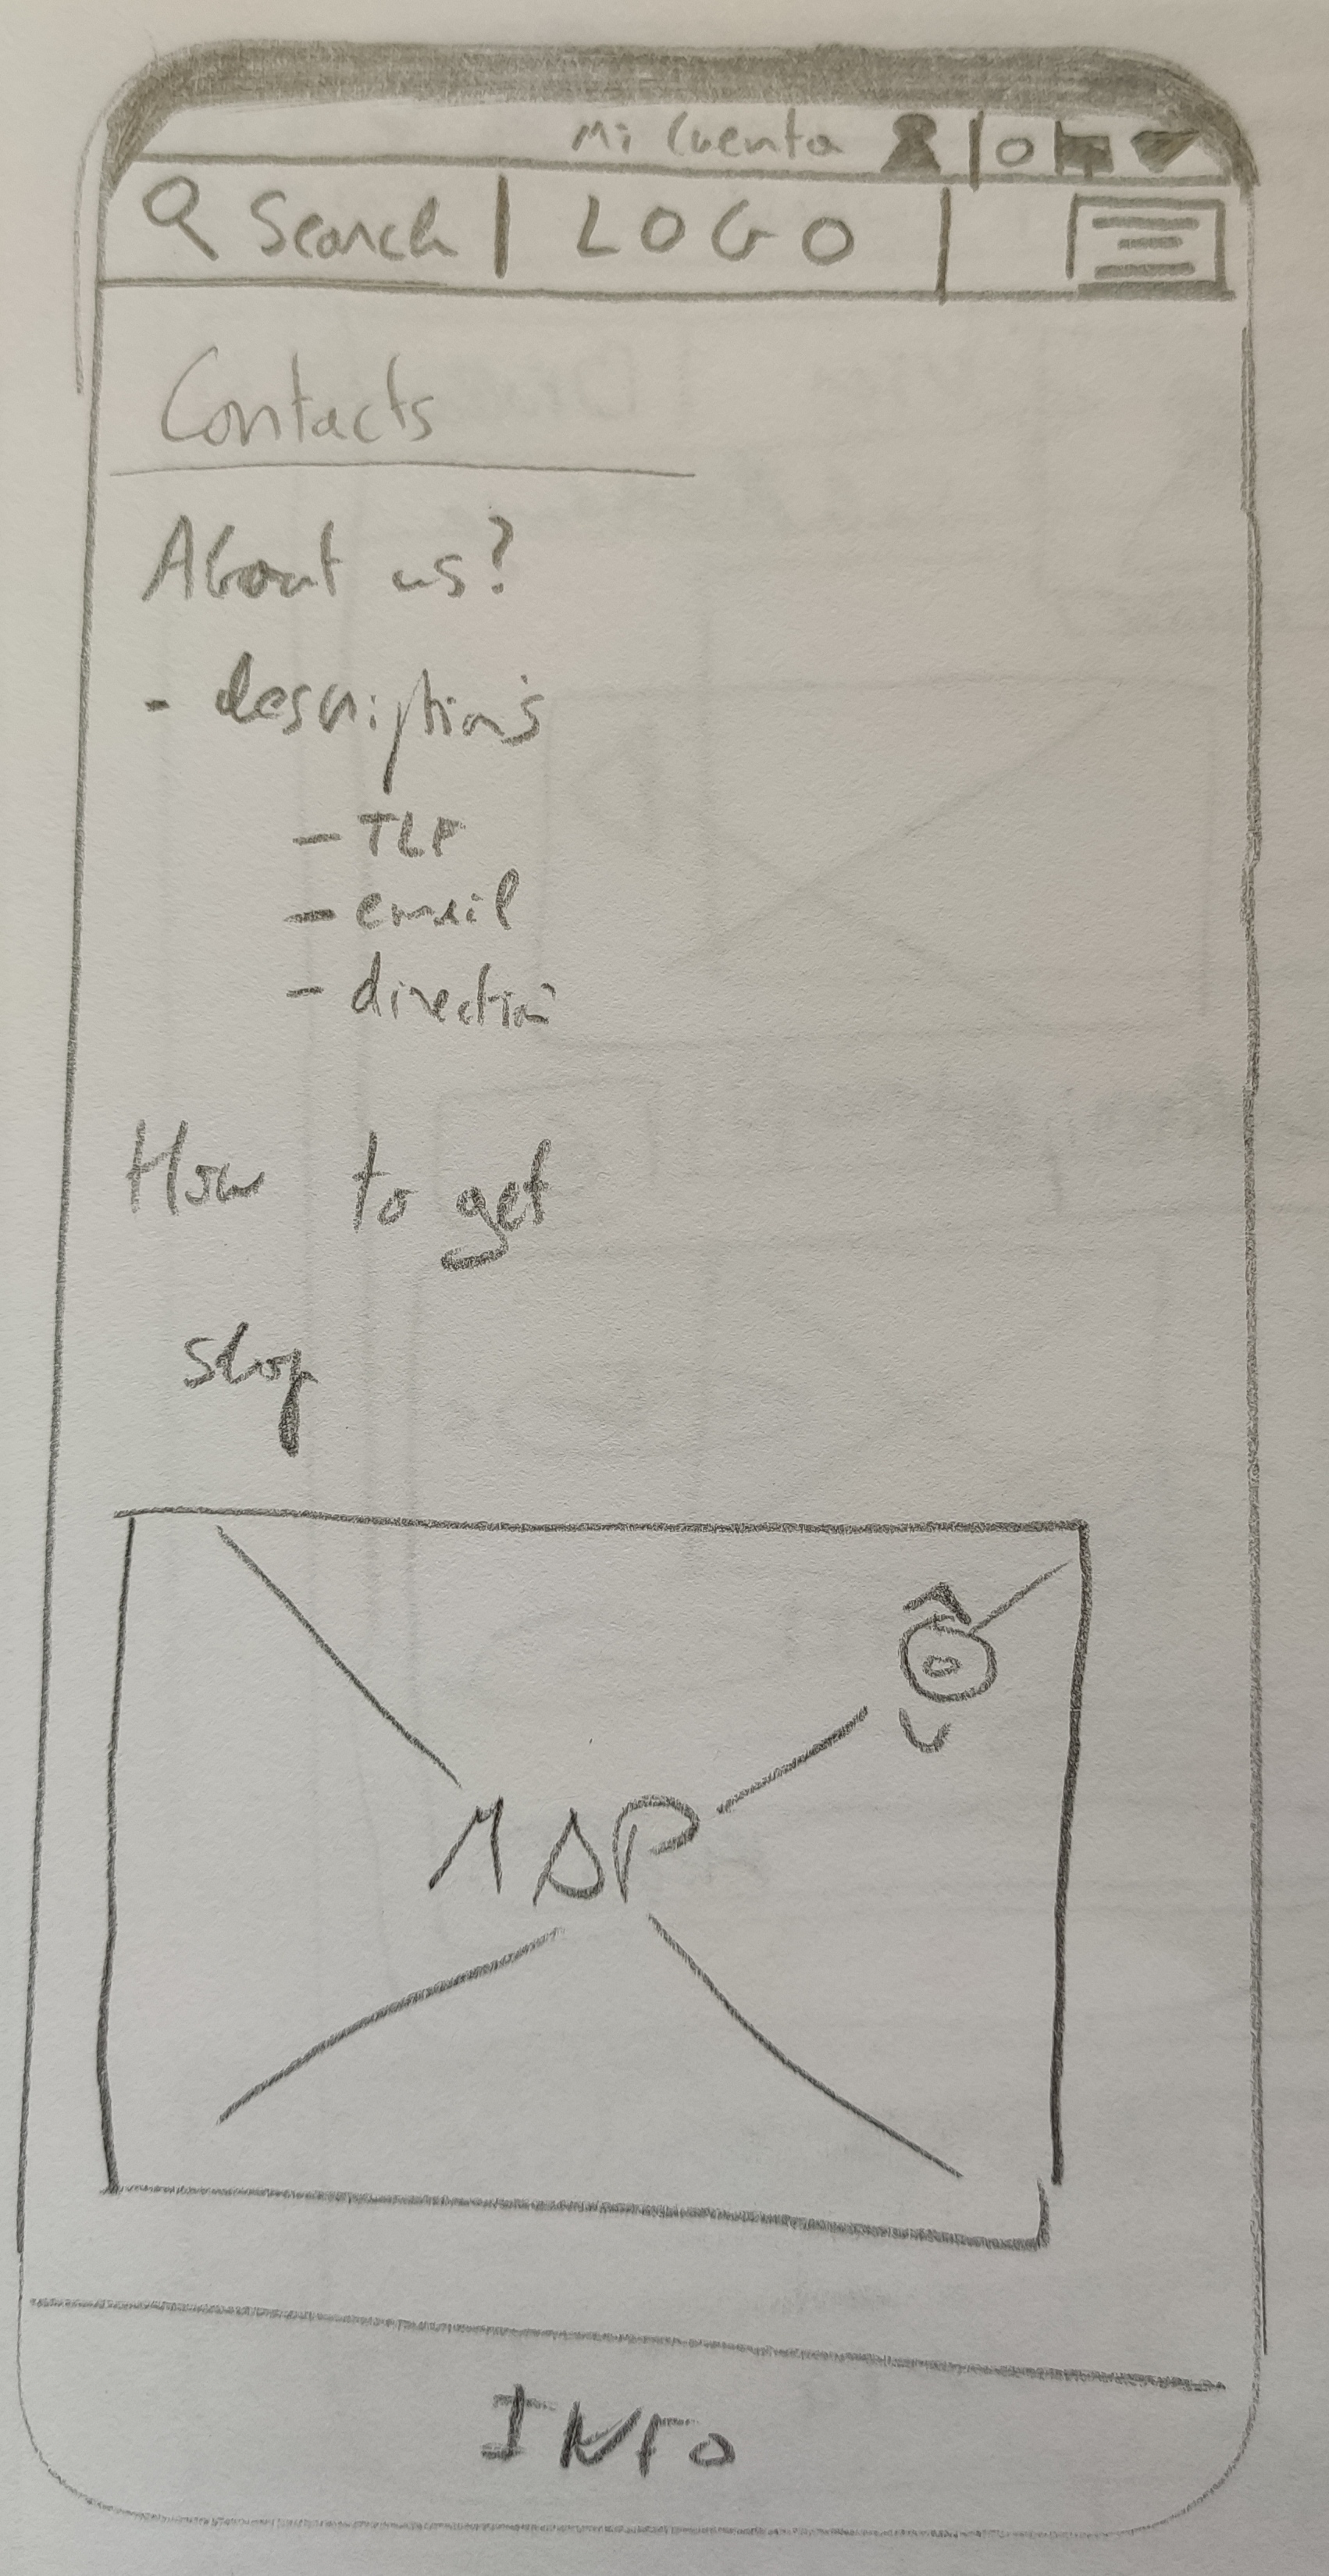 Mi Cuenta
Search LOGO
Contacts
About us?
- descriptions
- TLF
- email
- direction
How to get
shop
MAP
INFO